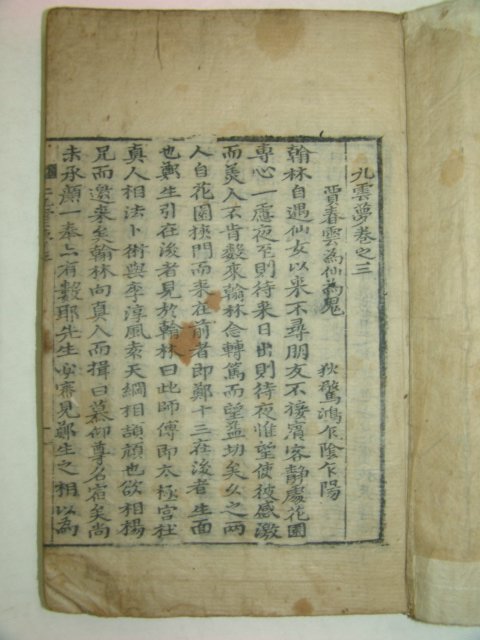 九雲夢卷之三
賈春雲為仙為鬼 狄驚鴻乍陰乍陽
翰林自遇仙女以來不尋朋友不接賓客靜處花園
專心一慮夜至則待來日出則待夜惟望使彼感激
而美人不肯數來翰林念轉篤而望益切矣久之兩
人自花園挾門而來在前者即鄭十三在後者生面
也鄭生引在後者見於翰林曰此師傅即太極宮杜
真人相法卜術與李淳風袁天綱相頡頏也欲相楊
兄而邀來矣翰林向真人而揖曰慕仰尊名宿矣尚
未承顏一奉亦有數耶先生必審見鄭生之相以為